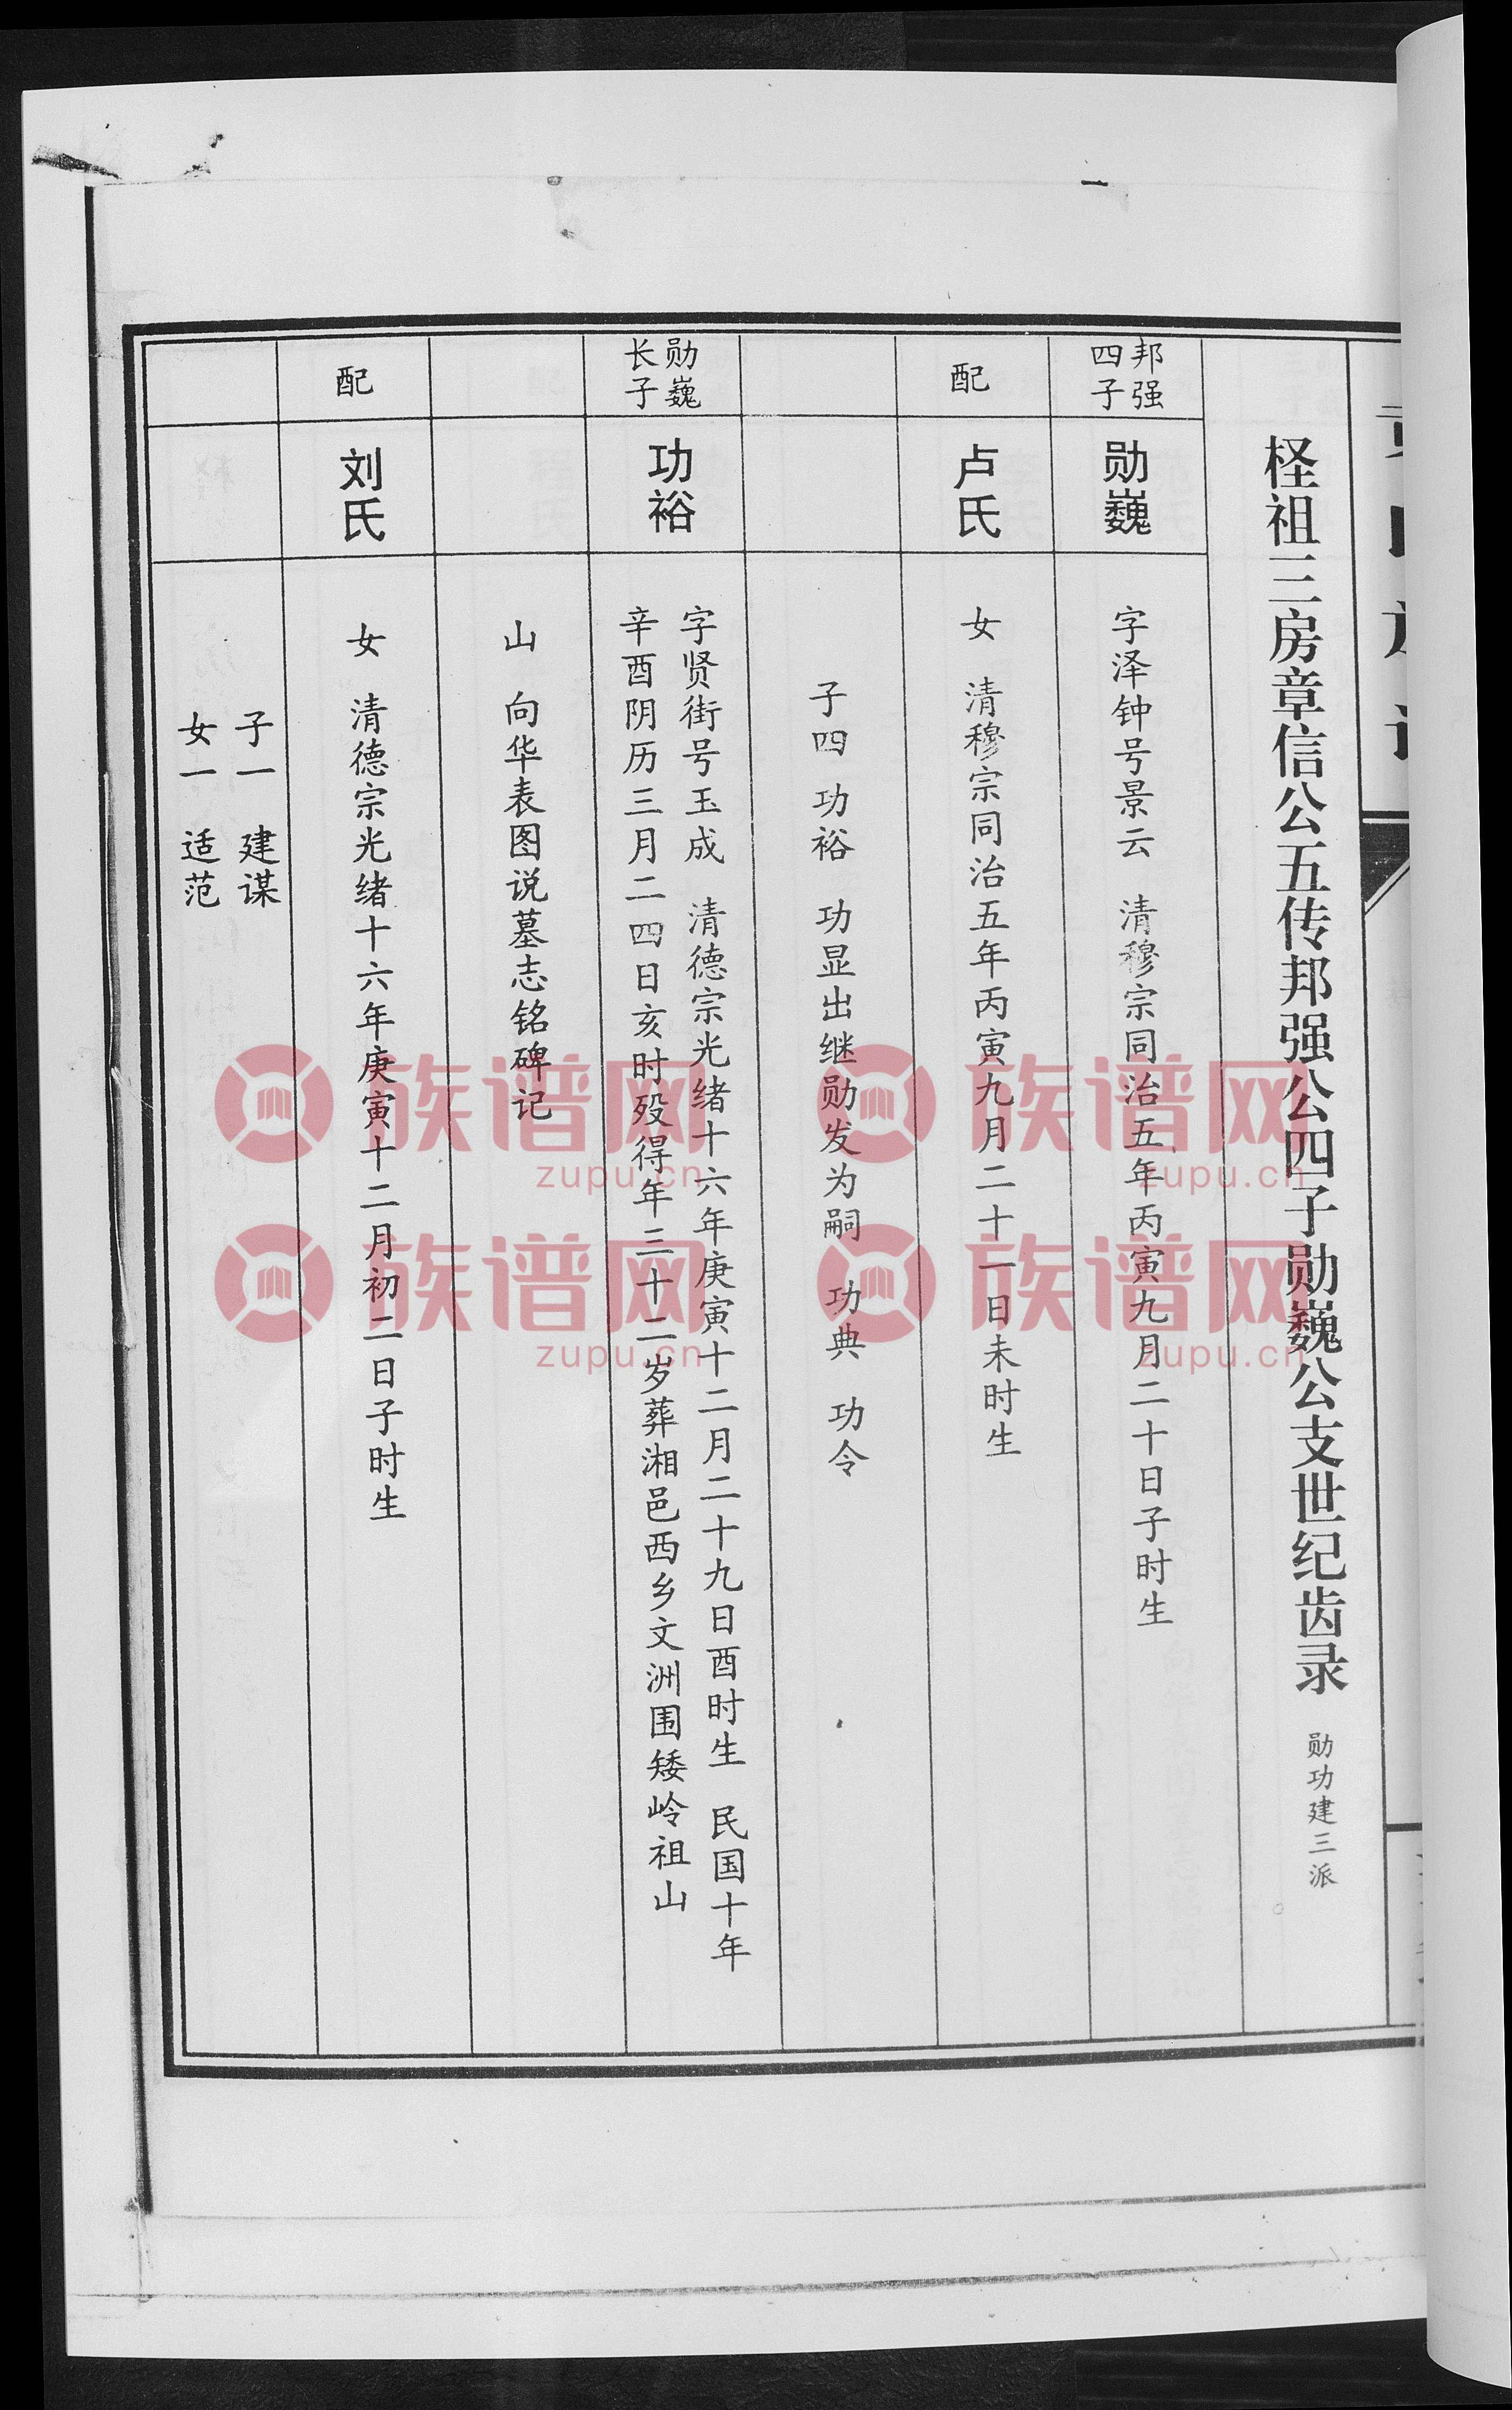 柽祖三房章信公五传邦强公四子勋巍公支世纪齿录 勋功建三派
邦强
四子
勋巍
字泽钟号景云 清穆宗同治五年丙寅九月二十日子时生
配
卢氏
女 清穆宗同治五年丙寅九月二十一日未时生
子四 功裕 功显出继勋发为嗣 功典 功令
勋巍
长子
功裕
字贤街号玉成 清德宗光绪十六年庚寅十二月二十九日酉时生 民国十年
辛酉阴历三月二四日亥时殁得年三十二岁葬湘邑西乡文洲围矮岭祖山
山 向华表图说墓志铭碑记
配
刘氏
女 清德宗光绪十六年庚寅十二月初二日子时生
子一 建谋
女一 适范
族谱网 族谱网
zupu.cn zupu.cn
族谱网 族谱网
zupu.cn zupu.cn